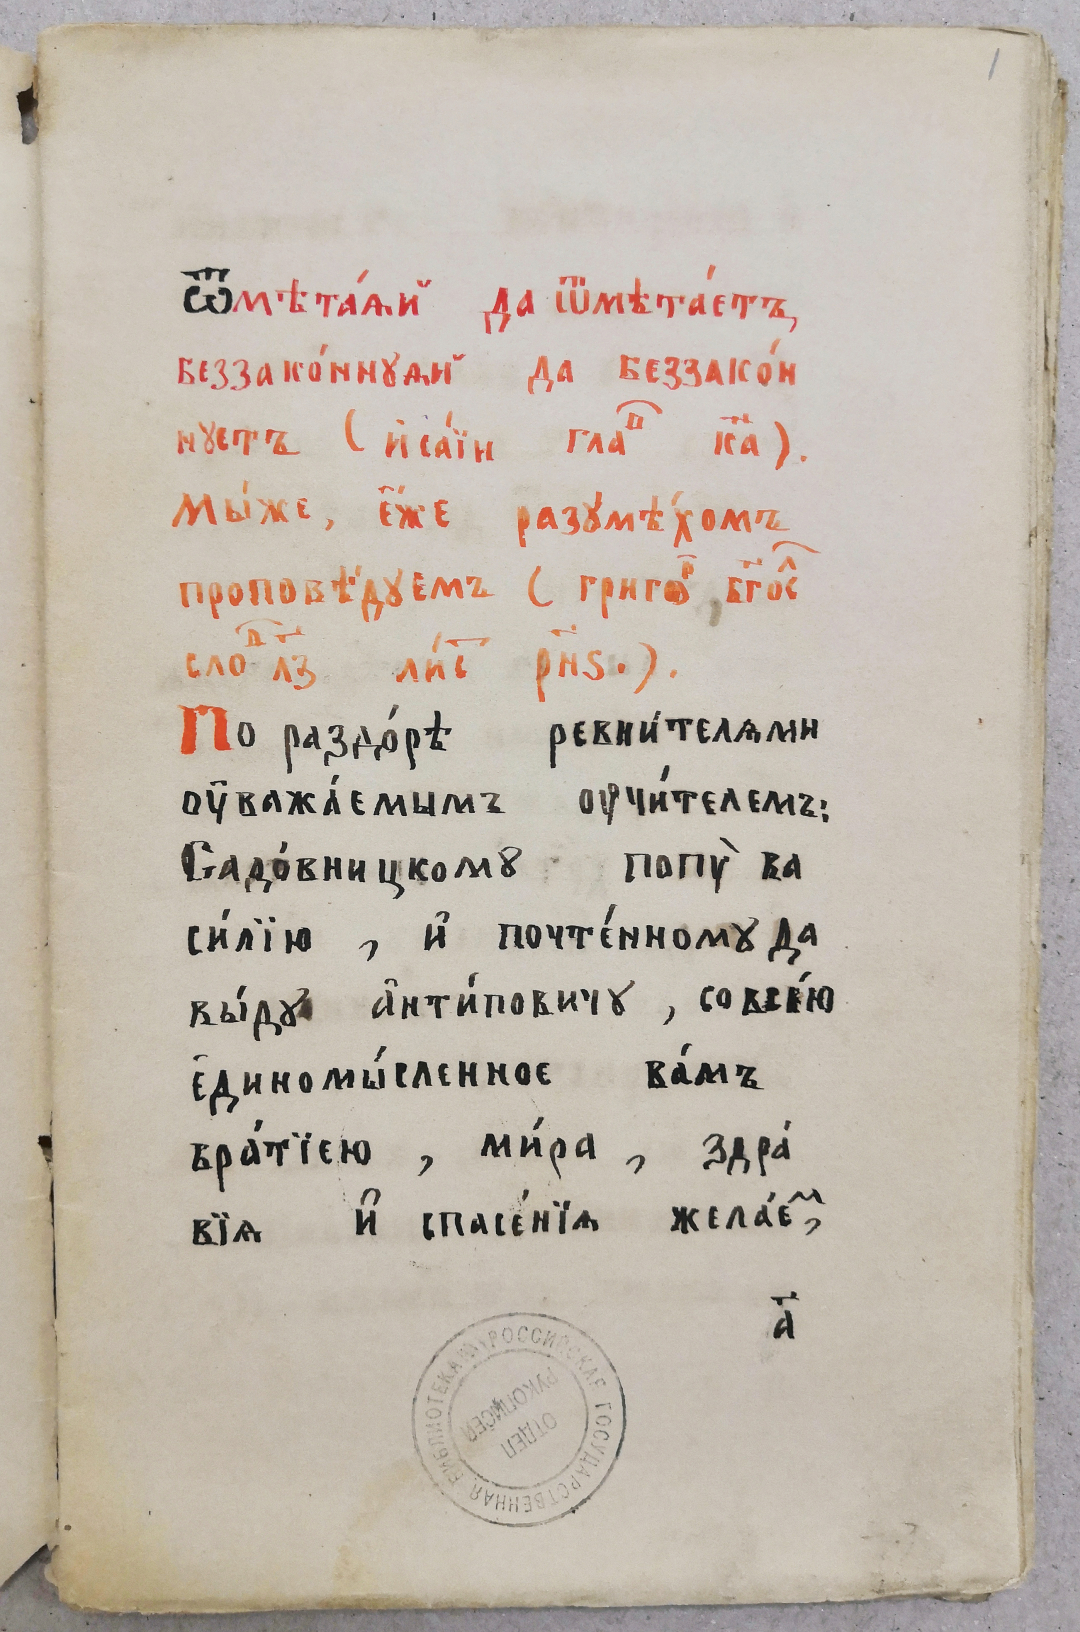 1
Ѿмѣта́ѧй да ѿмѣта́етъ,
беззако́ннꙋѧй да беззако́н
нꙋетъ ( и҆са́їи глаⷡ҇ к҃а ).
Мы́же, є҆́же разꙋмѣ́хомъ
проповѣ́дꙋемъ ( григѡⷬ҇, бг҃осⷧ҇
слоⷡ҇ л҃з ли́с҇ р҃нѕ. ).
По раздо́рѣ ревни́телѧми
оу҆важа́емымъ оучи́телемъ:
Садо́вницкомꙋ попу̀ ва
си́лїю , и҆ почте́нномꙋ да
вы́дꙋ а҆нти́повичꙋ , совсе́ю
є҆диномы́сленное ва́мъ
бра́тїею , ми́ра , здра́
вїѧ и҆ спасе́нїѧ жела́еⷨ,
а҃
РОССИЙСКАЯ ГОСУДАРСТВЕННАЯ БИБЛИОТЕКА
ОТДЕЛ
РУКОПИСЕЙ